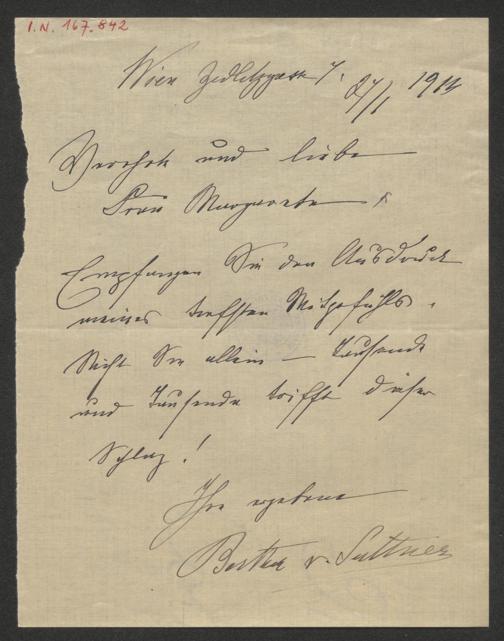 I.N. 167.842
Wien Zedlitzgasse 7.
27/1 1914
Verehrte und liebe
Frau Margarete!
Empfangen Sie den Ausdruck
meines tiefsten Mitgefühls.
Nicht Sie allein – Tausende
und Tausende trifft dieser
Schlag!
Ihre ergebene
Bertha v. Suttner